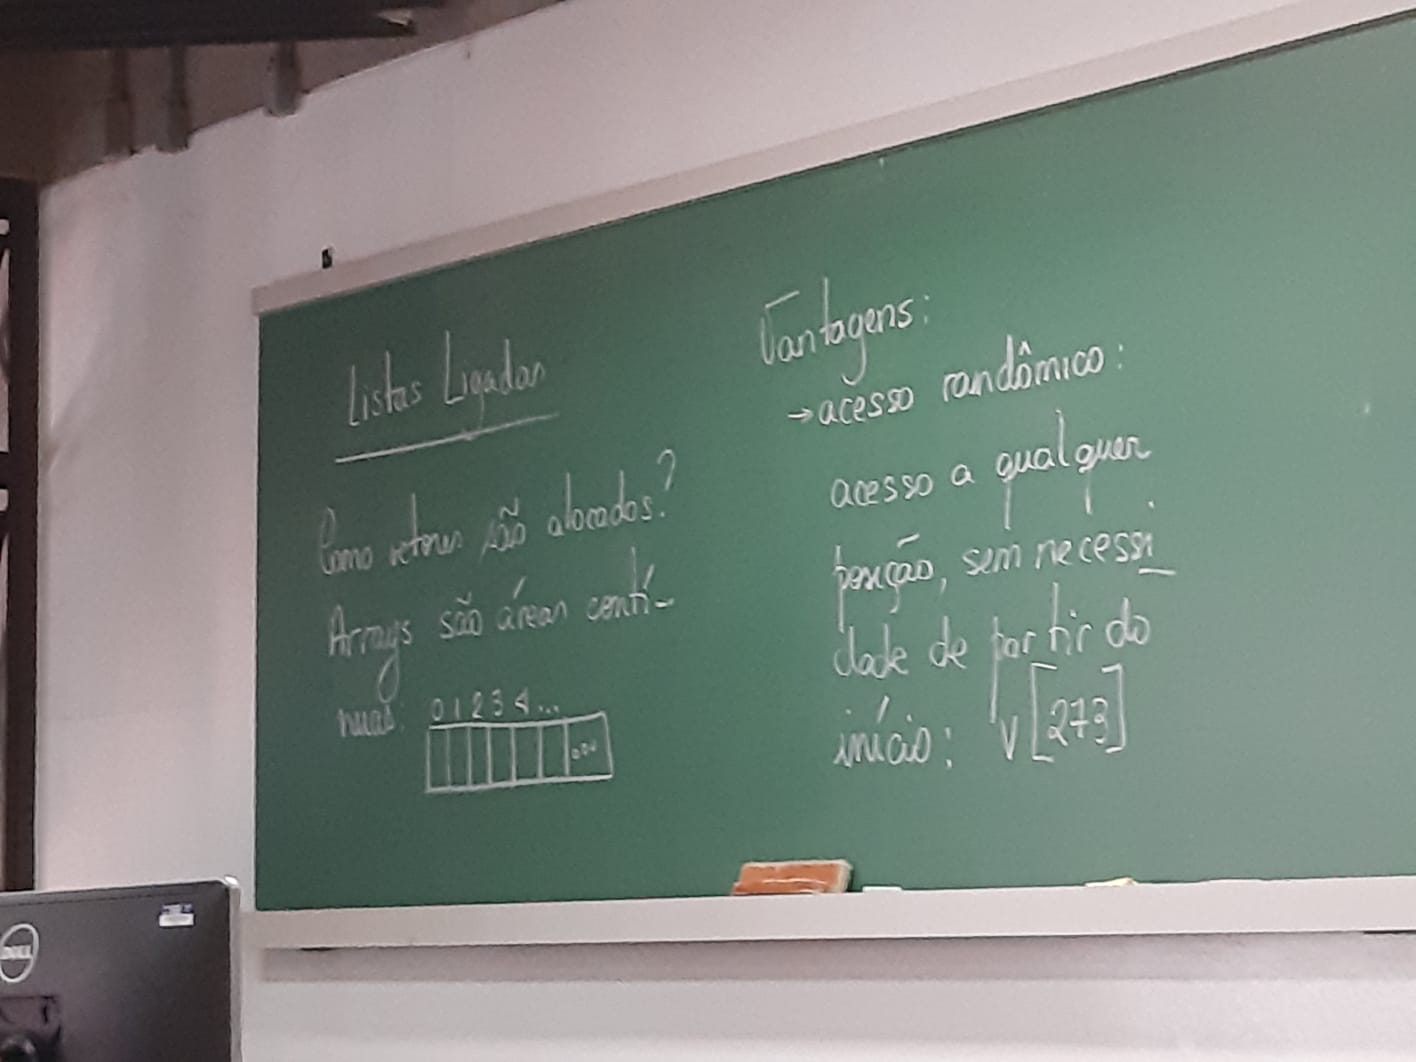 Listas Ligadas
Como vetores são alocados?
Arrays são áreas contí-
nuas:
0 1 2 3 4 ...
...
Vantagens:
→ acesso randômico:
acesso a qualquer
posição, sem necessi_
dade de partir do
início: v[273]
DELL